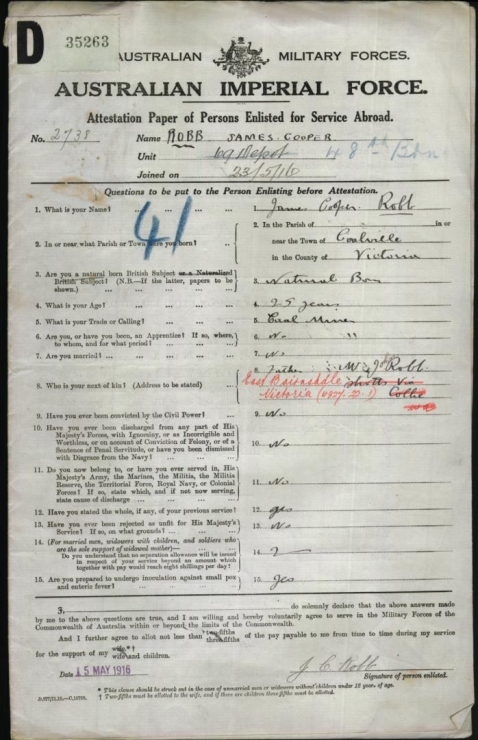 D
35263
AUSTRALIAN MILITARY FORCES.
AUSTRALIAN IMPERIAL FORCE.
Attestation Paper of Persons Enlisted for Service Abroad.
No. 2738 Name ROBB JAMES COOPER
Unit 69 Depot 48th Btn
Joined on 23/5/16
Questions to be put to the Person Enlisting before Attestation.
41
1. What is your Name? ... ... ... ... 1. James Cooper Robb
2. In or near what Parish or Town were you born? .. 2. In the Parish of in or
near the Town of Coalville
in the County of Victoria
3. Are you a natural born British Subject or a Naturalized
British Subject? (N.B.—If the latter, papers to be
shown.) ... ... 3. Natural Born
4. What is your Age? ... ... ... ... 4. 25 years
5. What is your Trade or Calling? ... ... ... 5. Coal Miner
6. Are you, or have you been, an Apprentice? If so, where,
to whom, and for what period? ... ... 6. No "
7. Are you married? ... ... ... ... 7. No
8. Who is your next of kin? (Address to be stated) ... 8. Father W J Robb
East Bairnsdale Shotts Via
Victoria Collie
9. Have you ever been convicted by the Civil Power? ... 9. No
10. Have you ever been discharged from any part of His
Majesty's Forces, with Ignominy, or as Incorrigible and
Worthless, or on account of Conviction of Felony, or of a
Sentence of Penal Servitude, or have you been dismissed
with Disgrace from the Navy? ... ... 10. No
11. Do you now belong to, or have you ever served in, His
Majesty's Army, the Marines, the Militia, the Militia
Reserve, the Territorial Force, Royal Navy, or Colonial
Forces? If so, state which, and if not now serving,
state cause of discharge ... ... 11. No
12. Have you stated the whole, if any, of your previous service? 12. yes
13. Have you ever been rejected as unfit for His Majesty's
Service? If so, on what grounds? ... ... 13. No
14. (For married men, widowers with children, and soldiers who
are the sole support of widowed mother)—
Do you understand that no separation allowance will be issued
in respect of your service beyond an amount which
together with pay would reach eight shillings per day? 14.
15. Are you prepared to undergo inoculation against small pox
and enteric fever? ... ... 15. yes
do solemnly declare that the above answers made
by me to the above questions are true, and I am willing and hereby voluntarily agree to serve in the Military Forces of the
Commonwealth of Australia within or beyond the limits of the Commonwealth.
And I further agree to allot not less than two-fifths three-fifths of the pay payable to me from time to time during my service
for the support of my wife*† wife and children.
Date 15 MAY 1916 J. C. Robb
Signature of person enlisted.
* This clause should be struck out in the case of unmarried men or widowers without children under 18 years of age.
† Two-fifths must be allotted to the wife, and if there are children three-fifths must be allotted.